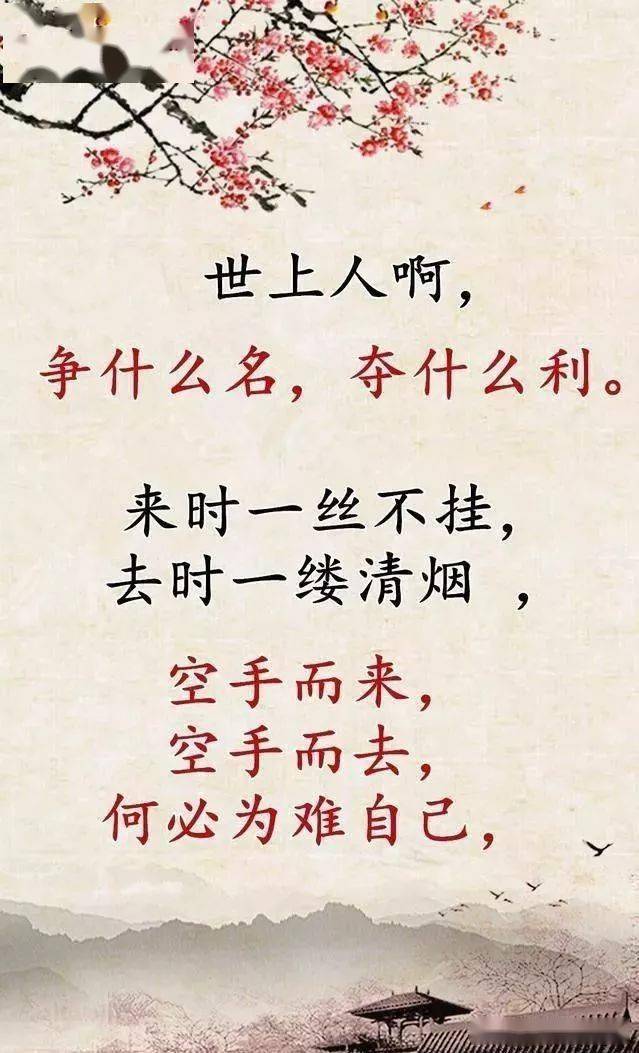 世上人啊，
争什么名，夺什么利。
来时一丝不挂，
去时一缕清烟 ，
空手而来，
空手而去，
何必为难自己，